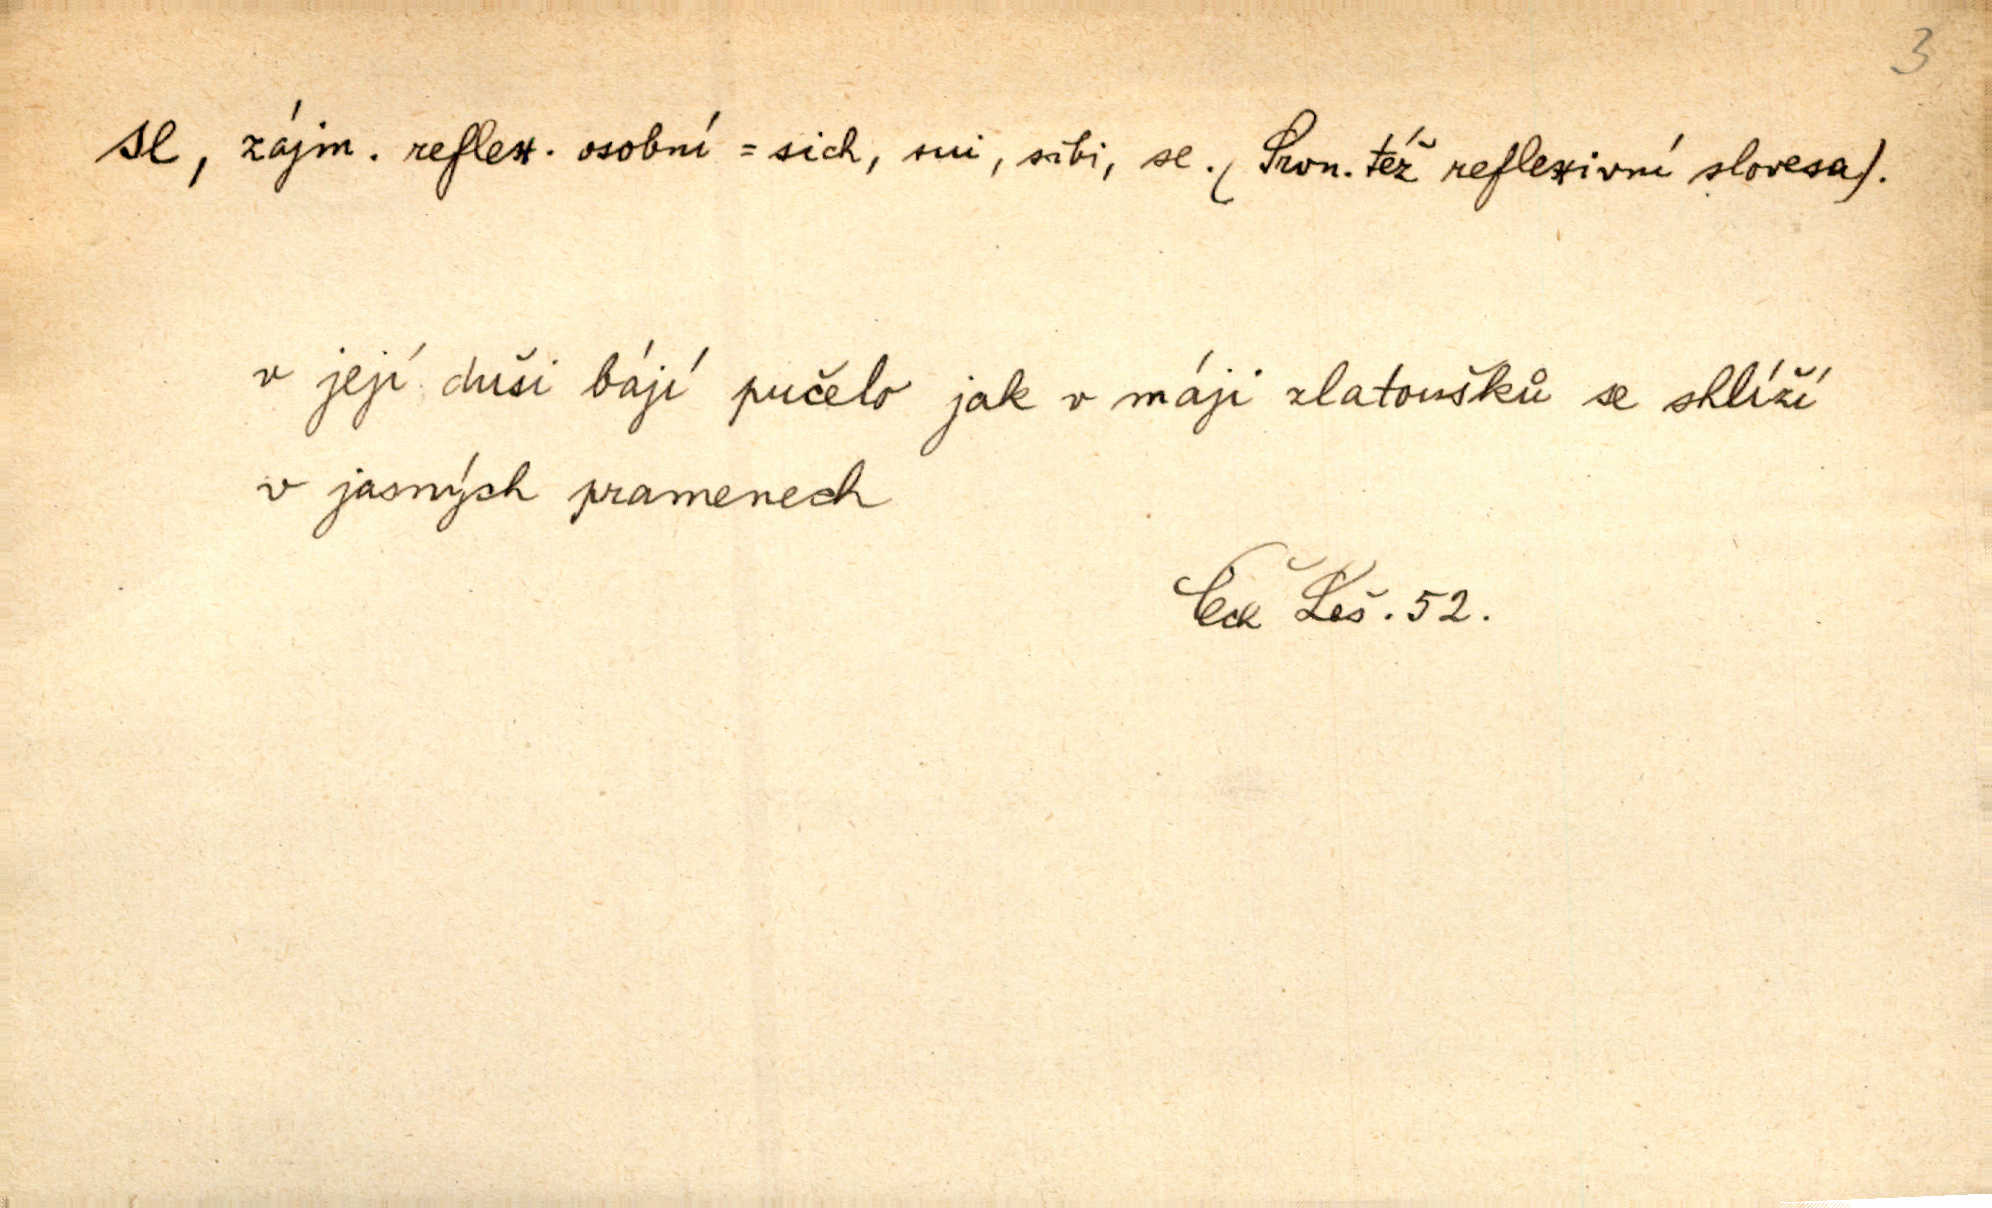 3
se, zájm. reflex. osobní = sich, sui, sibi, se. (Srvn. též reflexivní slovesa).
v její duši bájí pučelo jak v máji zlatoušků se shlíží
v jasných pramenech
Čch Leš. 52.